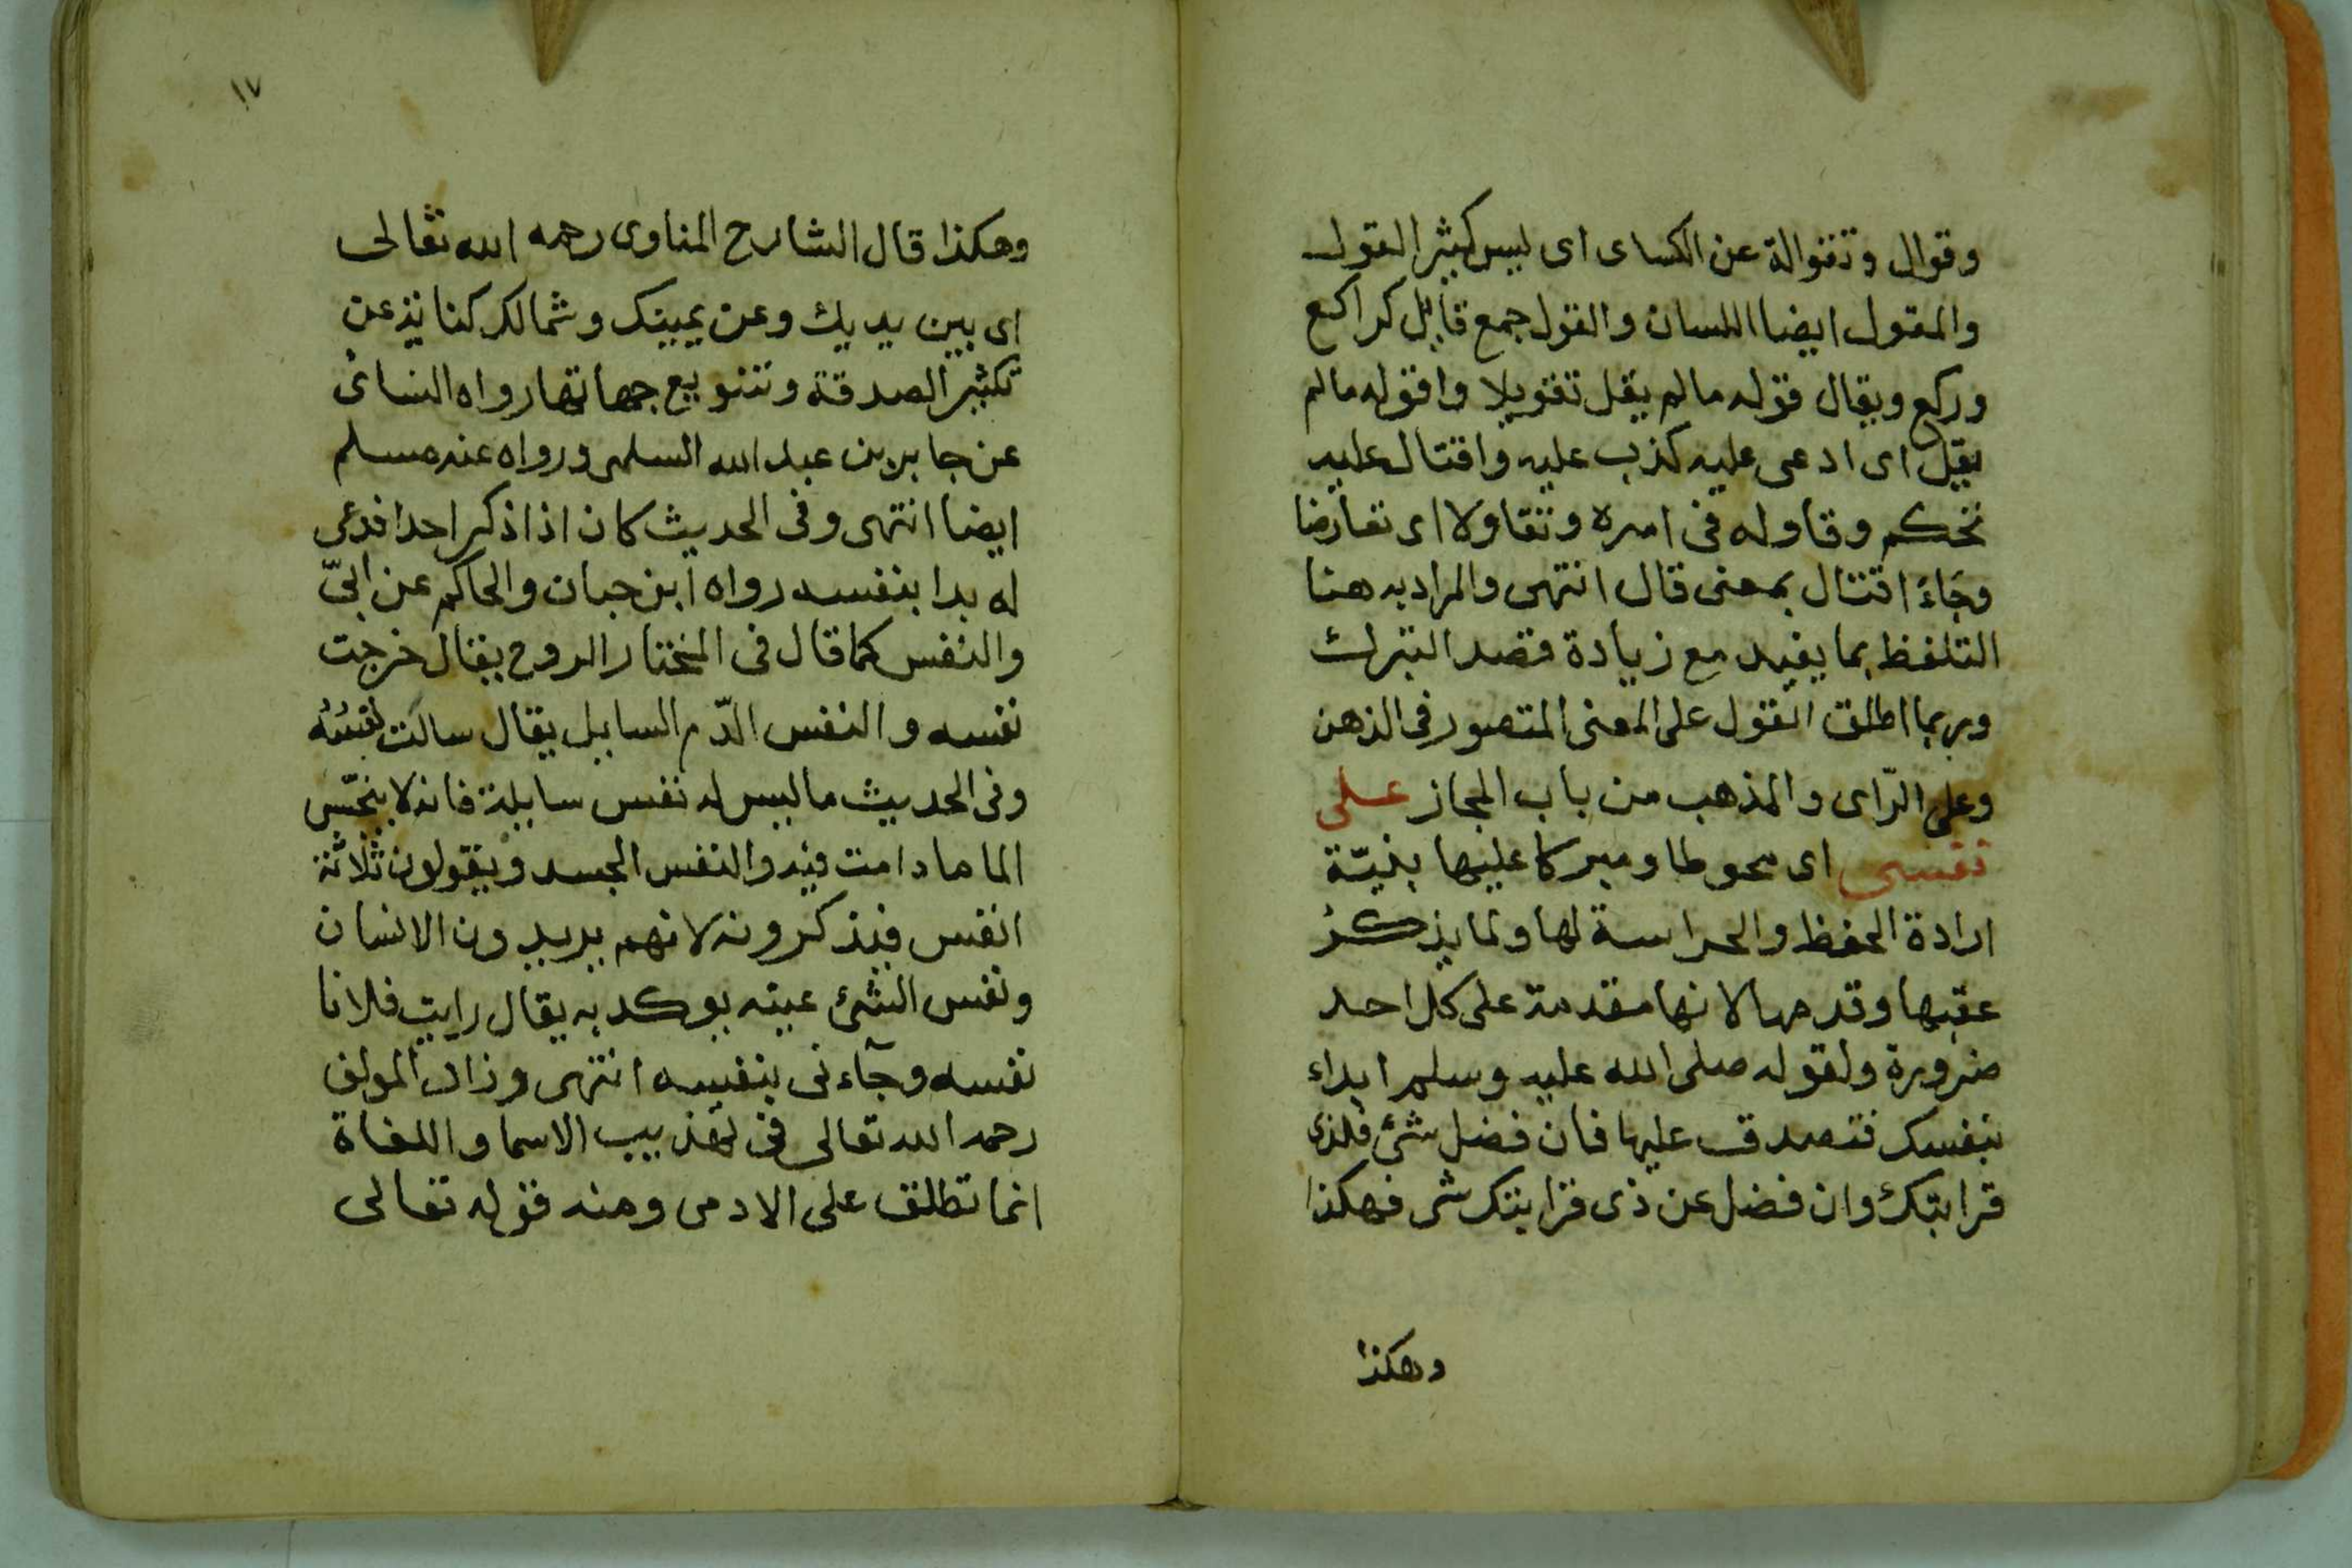 وقوال وتقوالة عن الكساى اى ليس كثير القول
والمقول ايضا اللسان والقول جمع قايل كراكع
وركع ويقال قوله مالم يقل تقويلا واقوله مالم
يقل اى ادعى عليه كذب عليه واقتال عليه
تحكم وقاوله فى امره وتقاولا اى تفاوضا
وجاء اقتال بمعنى قال انتهى والمراد به هنا
التلفظ بما يفيد مع زيادة قصد التبرك
وربما اطلق القول على المعنى المتصور فى الذهن
وعلى الرّاى والمذهب من باب المجاز على
نفسى اى محوطا ومبركا عليها بنيّة
ارادة الحفظ والحراسة لها ولما يذكر
عقبها وقدمها لانها مقدمة على كل احد
ضرورة ولقوله صلى الله عليه وسلم ابداء
بنفسك فتصدق عليها فان فضل شئ فلذى
قرابتك وان فضل عن ذى قرابتك شى فهكذا
وهكذا
١٧
وهكذا قال الشارح المناوى رحمه الله تعالى
اى بين يديك وعن يمينك وشمالك كناية عن
تكثير الصدقة وتنويع جهاتها رواه النسائى
عن جابر بن عبد الله السلمى ورواه عنه مسلم
ايضا انتهى وفى الحديث كان اذا ذكر احدا فدعى
له بدا بنفسه رواه ابن حبان والحاكم عن ابىّ
والنفس كما قال فى المختار الروح يقال خرجت
نفسه والنفس الدّم السايل يقال سالت نفسُه
وفى الحديث ماليس له نفس سايلة فانه لا ينجّس
الما مادامت فيه والنفس الجسد ويقولون ثلاثة
انفس فيذكرونه لانهم يريدون الانسان
ونفس الشئ عينه يوكد به يقال رايت فلانا
نفسه وجآءنى بنفسه انتهى وزاد المولف
رحمه الله تعالى فى تهذيب الاسما واللغاة
انما تطلق على الادمى ومنه قوله تعالى